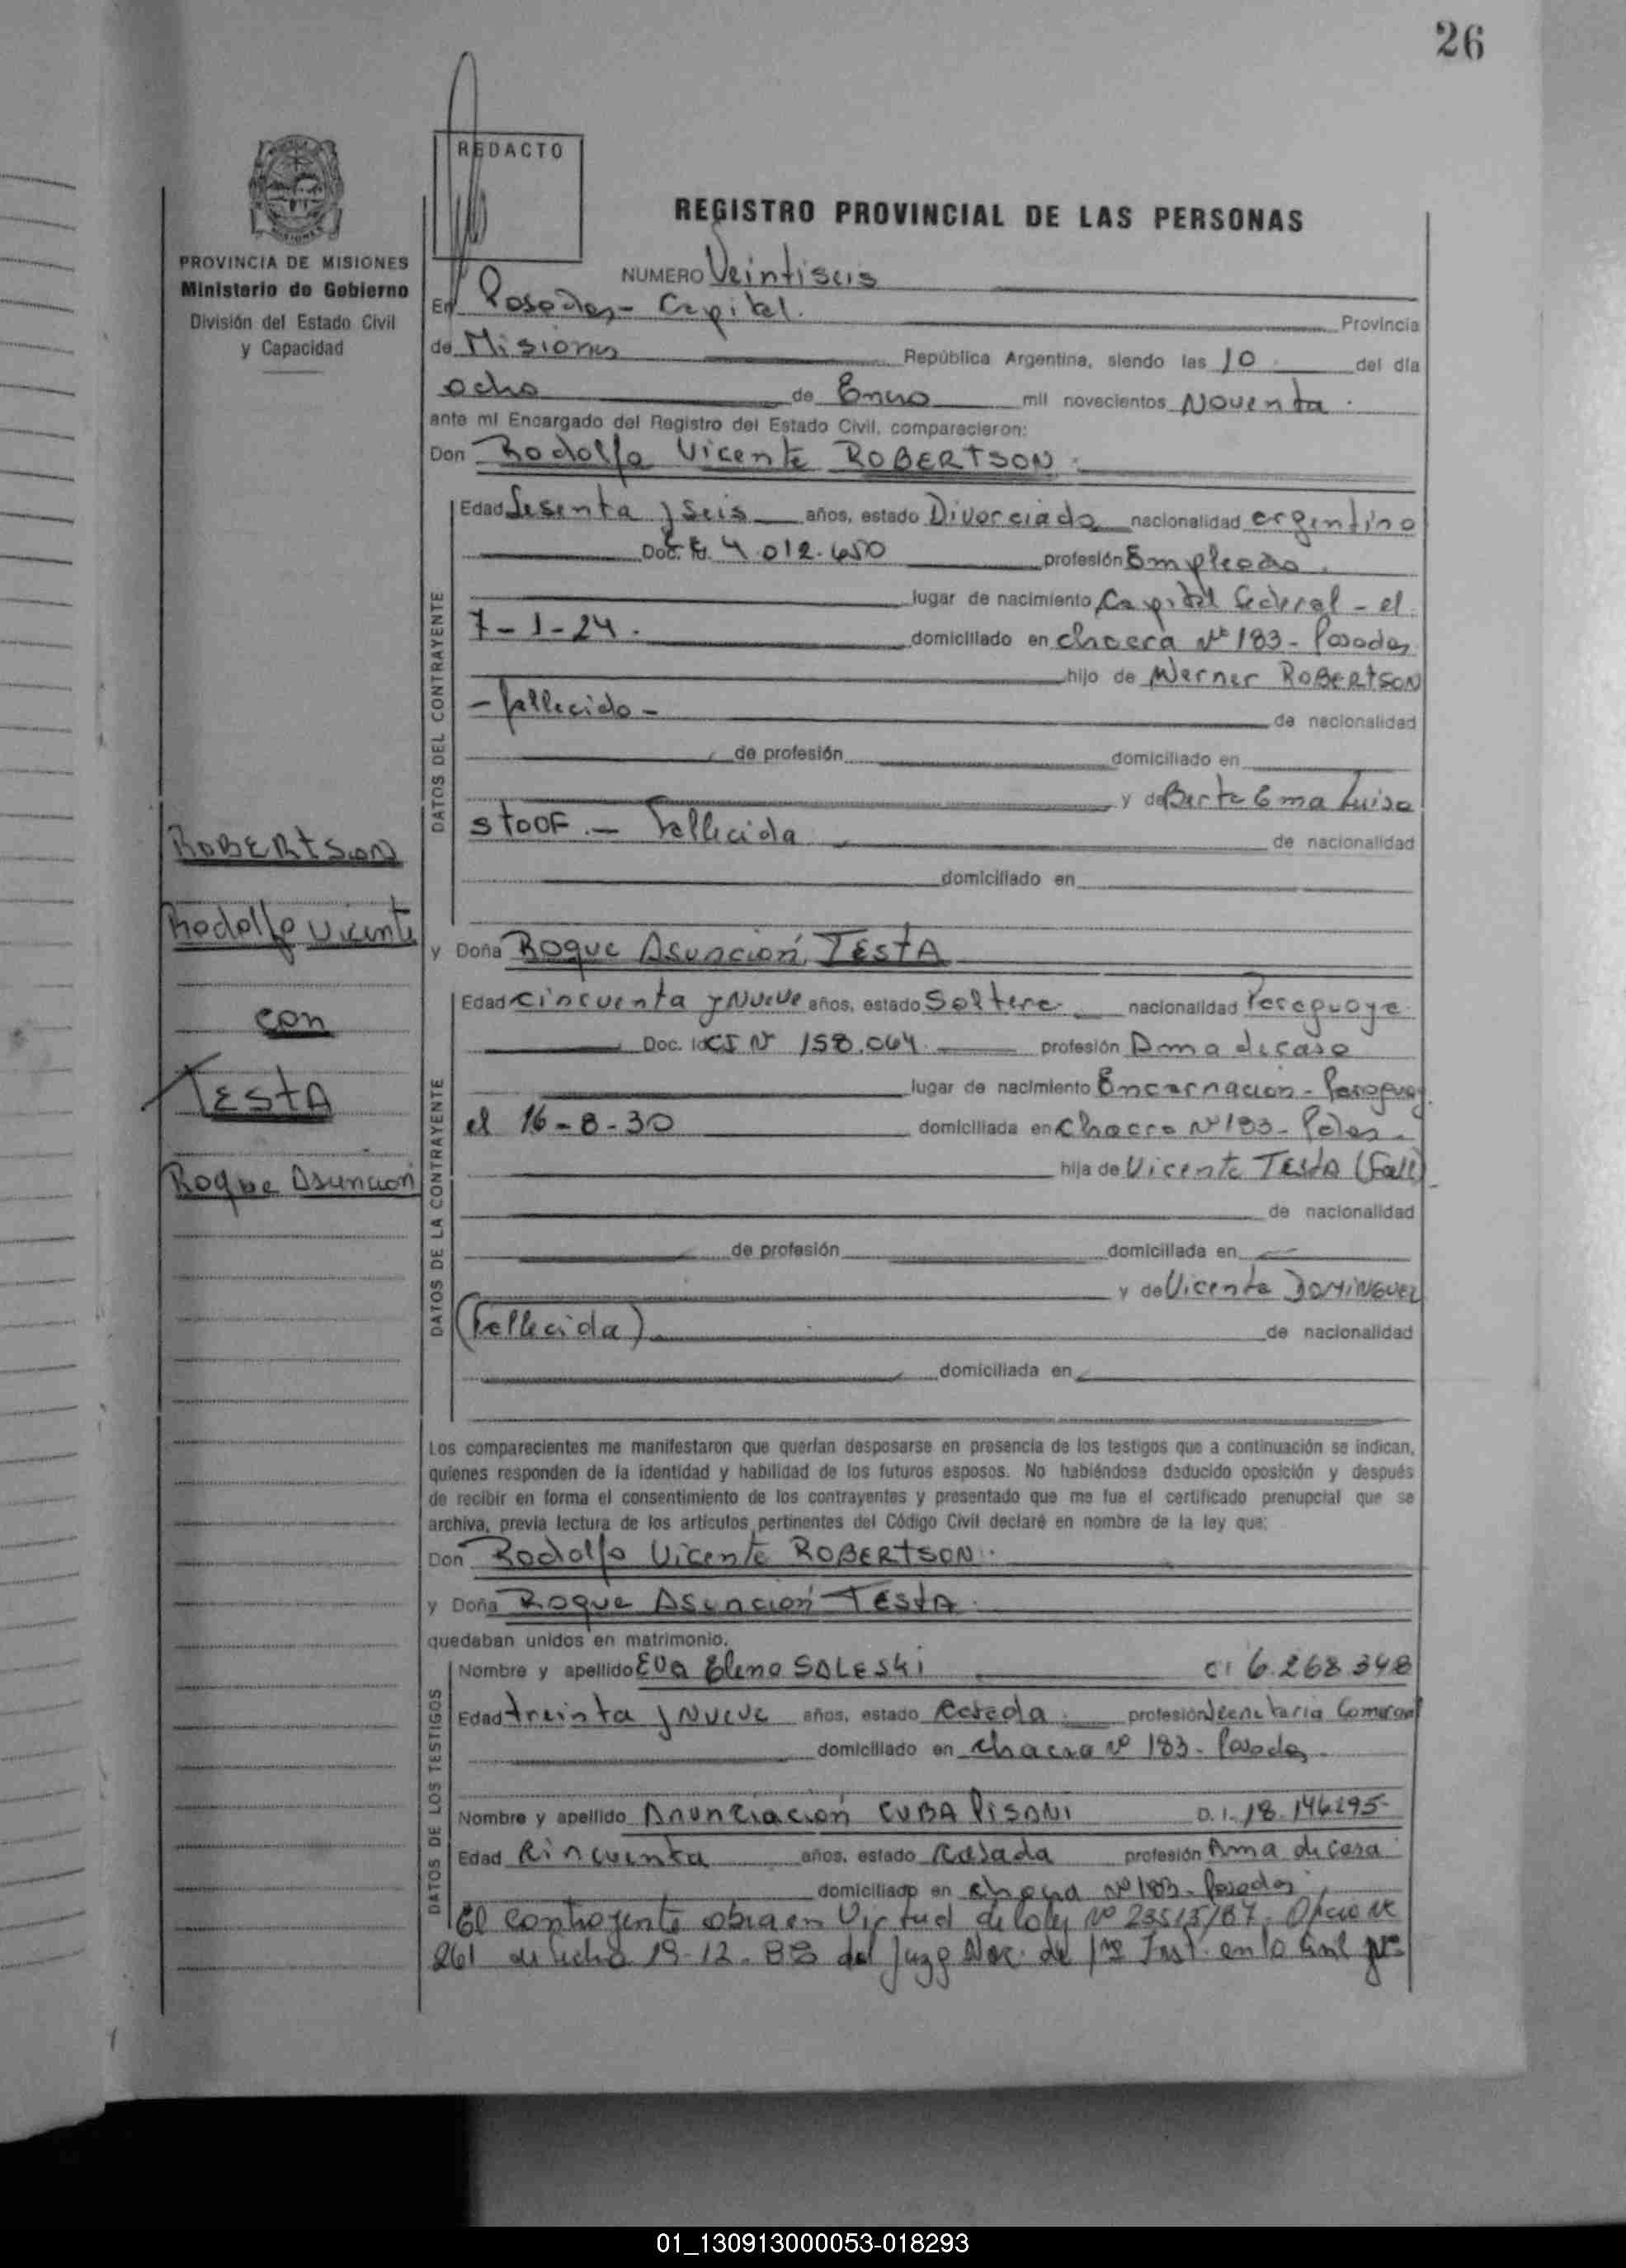 26
REDACTO
REGISTRO PROVINCIAL DE LAS PERSONAS
PROVINCIA DE MISIONES
Ministerio de Gobierno
División del Estado Civil
y Capacidad
NUMERO Veintiseis
En Posadas - Capital. Provincia
de Misiones República Argentina, siendo las 10 del día
ocho de Enero mil novecientos Noventa.
ante mí Encargado del Registro del Estado Civil, comparecieron:
Don Rodolfo Vicente ROBERTSON
DATOS DEL CONTRAYENTE
Edad Sesenta y Seis años, estado Divorciado nacionalidad argentino
Doc. 4.012.450 profesión Empleado.
lugar de nacimiento Capital Federal - el
7-1-24. domiciliado en chacra Nº 183 - Posadas
hijo de Werner ROBERTSON
- fallecido - de nacionalidad
de profesión domiciliado en
y de Berta Ema Luisa
STOOF. - Fallecida de nacionalidad
domiciliado en
ROBERTSON
Rodolfo Vicente
con
TESTA
Roque Asuncion
y Doña Roque Asunción TESTA
DATOS DE LA CONTRAYENTE
Edad Cincuenta y Nueve años, estado Soltera nacionalidad Paraguaya
Doc. Id CI Nº 158.064 profesión Ama de casa
lugar de nacimiento Encarnacion - Paraguay
el 16-8-30 domiciliada en Chacra Nº 183 - Pdas.
hija de Vicente TESTA (Fall)
de nacionalidad
de profesión domiciliada en
y de Vicenta DOMINGUEZ
(Fallecida) de nacionalidad
domiciliada en
Los comparecientes me manifestaron que querían desposarse en presencia de los testigos que a continuación se indican,
quienes responden de la identidad y habilidad de los futuros esposos. No habiéndose deducido oposición y después
de recibir en forma el consentimiento de los contrayentes y presentado que me fue el certificado prenupcial que se
archiva, previa lectura de los artículos pertinentes del Código Civil declaré en nombre de la ley que:
Don Rodolfo Vicente ROBERTSON.
y Doña Roque Asunción TESTA.
quedaban unidos en matrimonio.
DATOS DE LOS TESTIGOS
Nombre y apellido Eva Elena SALESKI CI 6.268.348
Edad treinta y Nueve años, estado Casada profesión Secretaria Comercial
domiciliado en chacra Nº 183 - Posadas
Nombre y apellido Anunciación CUBA PISANI D.I. 18.146.295-
Edad Cincuenta años, estado Casada profesión Ama de casa
domiciliado en chacra Nº 183 - Posadas
El contrayente obra en Virtud de la ley Nº 23515/87. Oficio Nº
261 de fecha 19-12-88 del Juzg Nac. de 1ra Inst. en lo Civil Nº
01_130913000053-018293